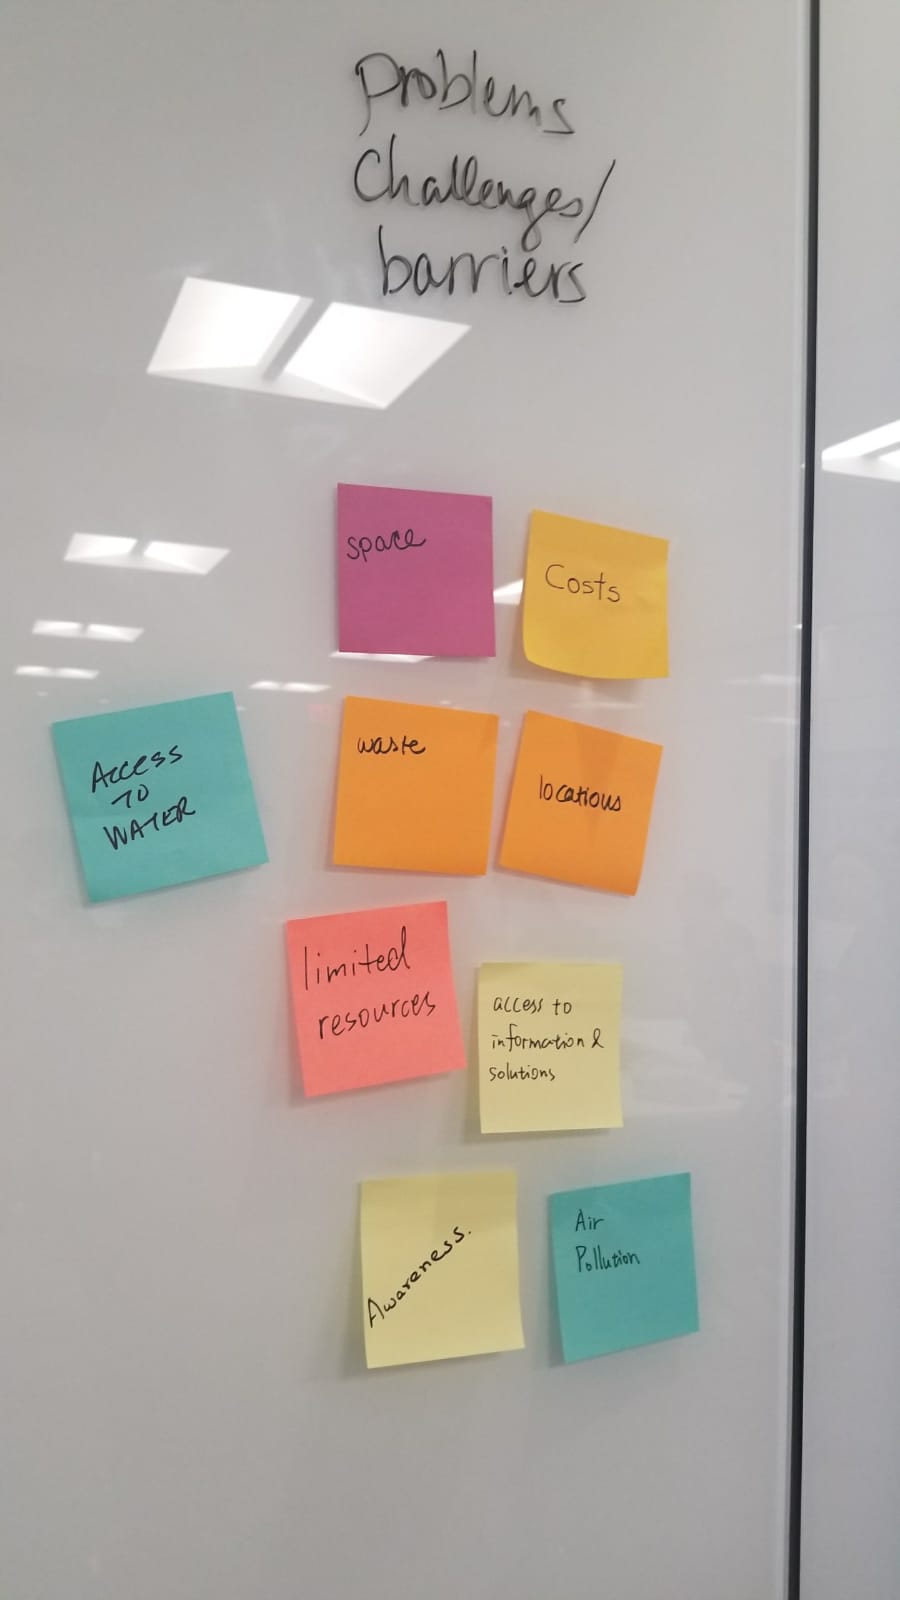 Problems
Challenges/
barriers
space
Costs
Access
TO
WATER
waste
locations
limited
resources
access to
information &
solutions
Awareness.
Air
Pollution